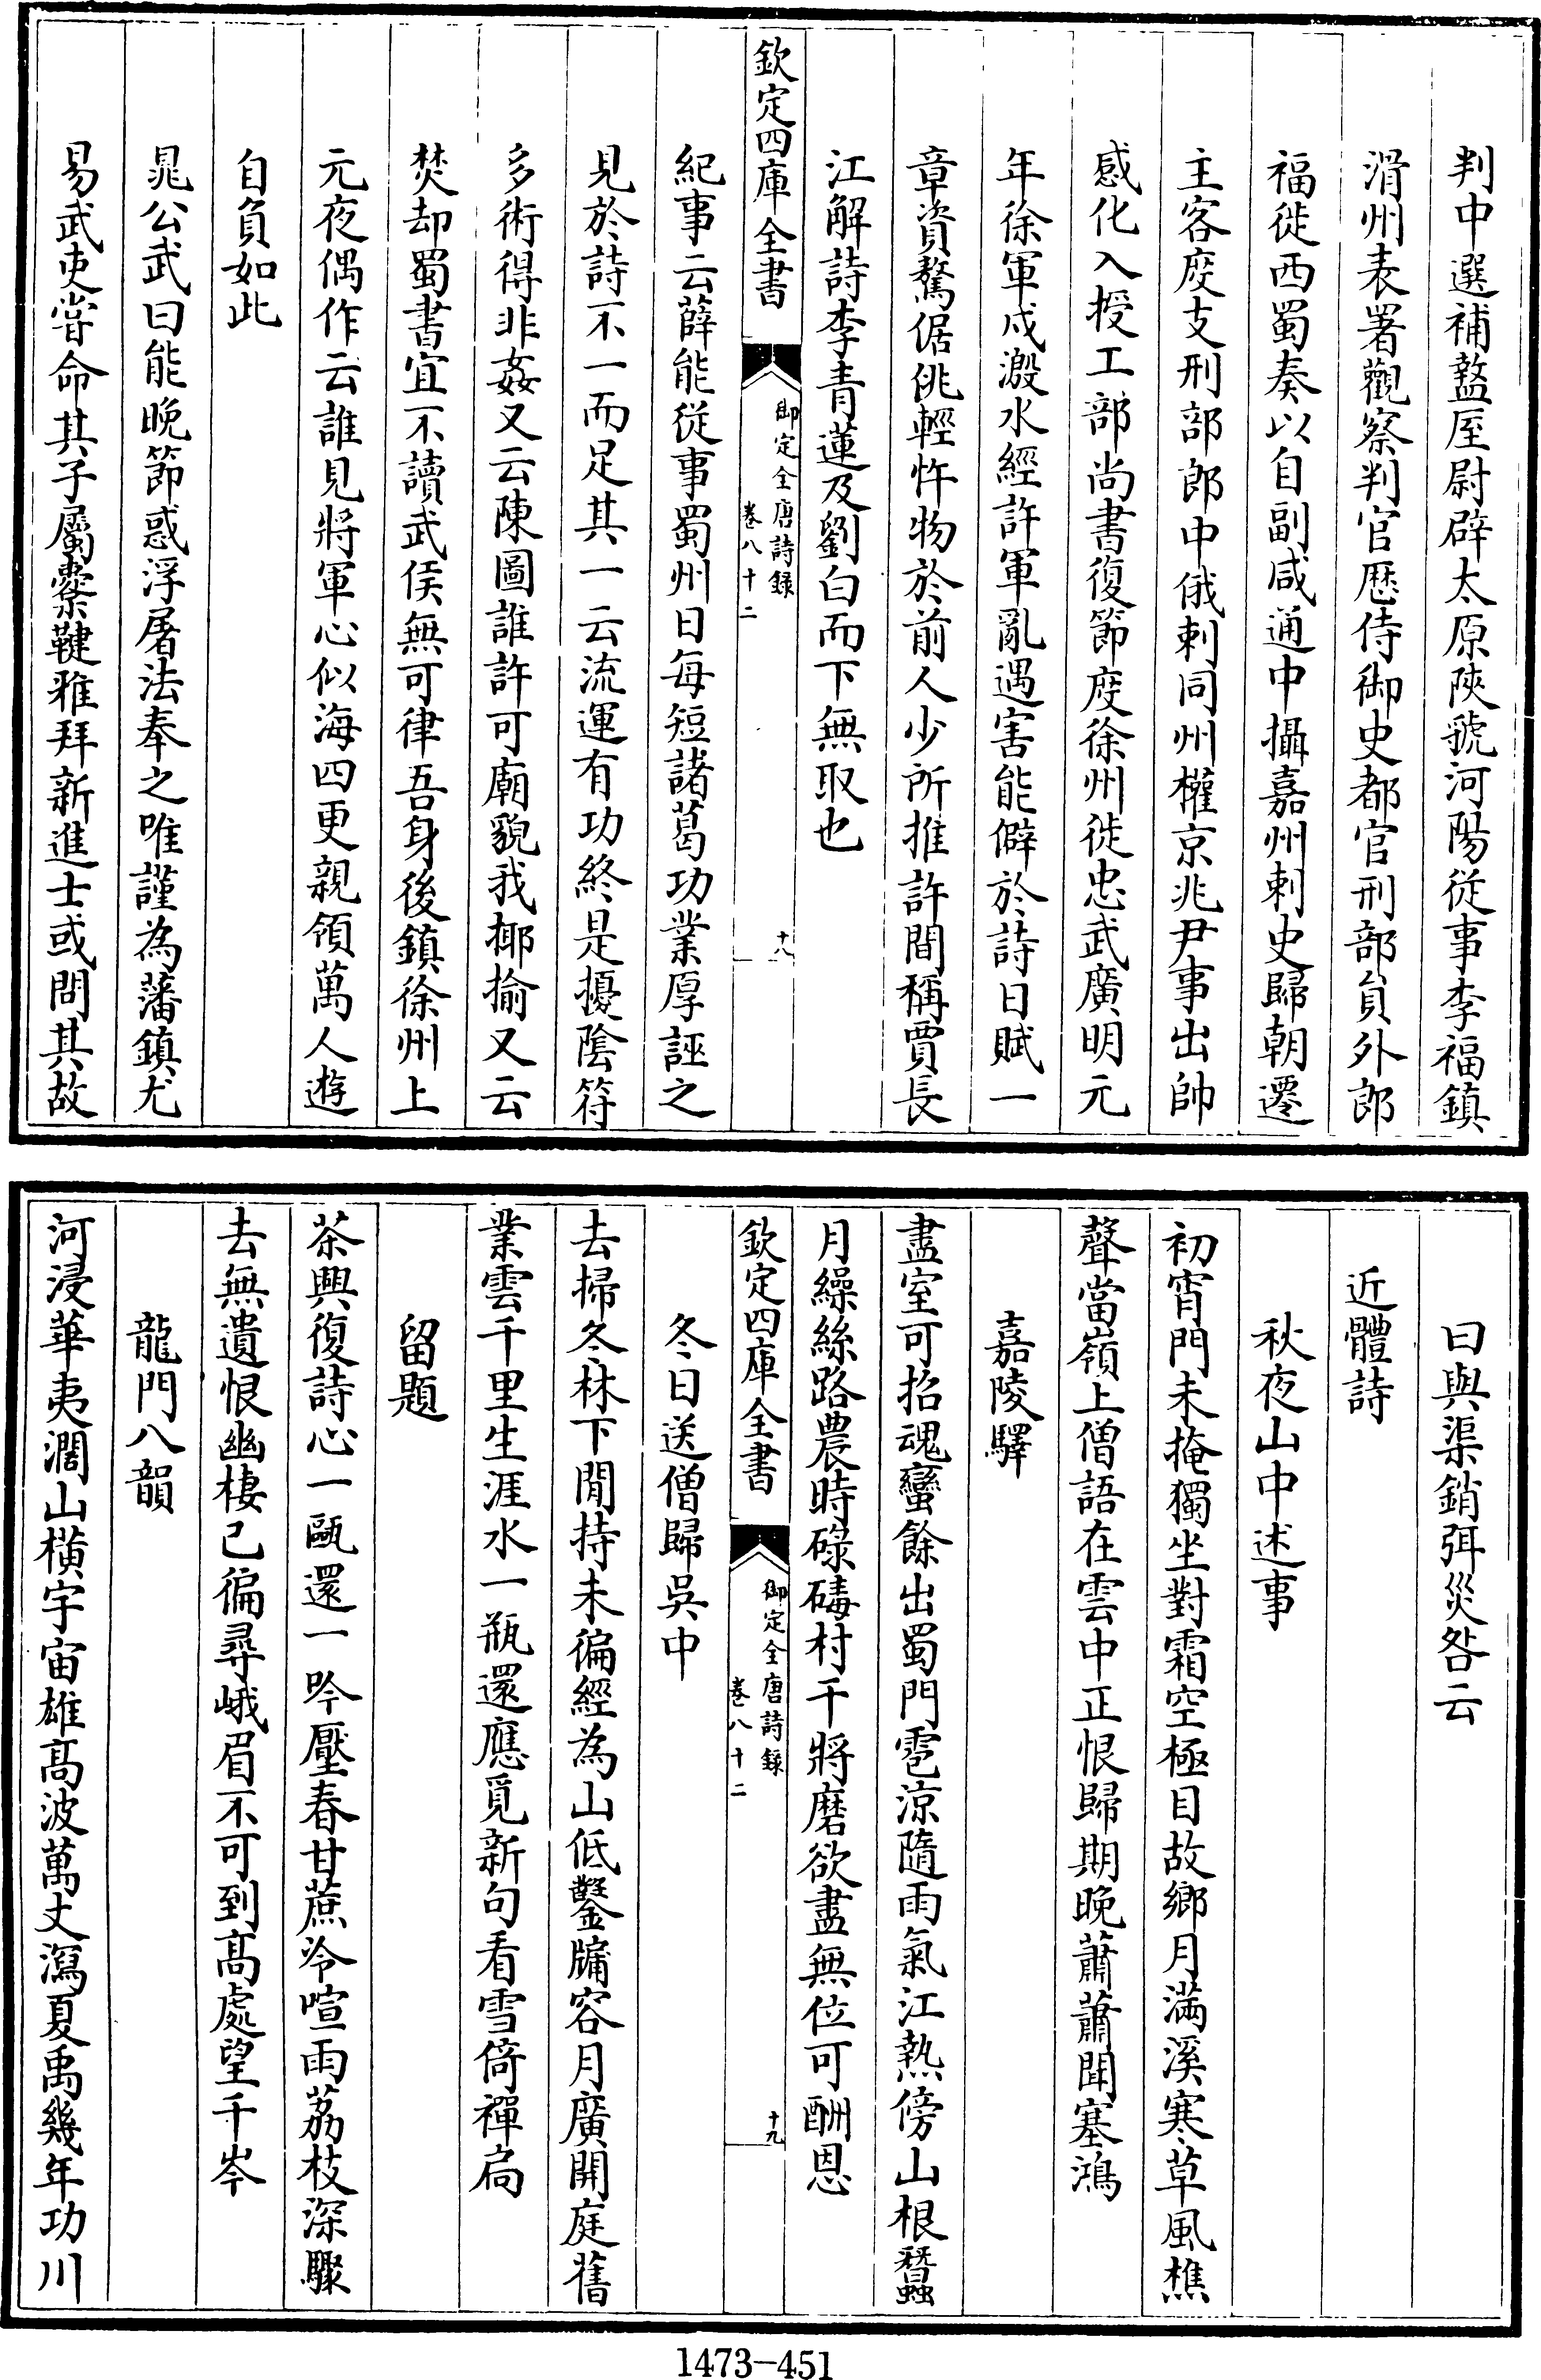 判中選補盩厔尉辟太原陜虢河陽從事李福鎮
滑州表署觀察判官歷侍御史都官刑部員外郎
福徙西蜀奏以自副咸通中攝嘉州刺史歸朝遷
主客度支刑部郎中俄刺同州權京兆尹事出帥
感化入授工部尚書復節度徐州徙忠武廣明元
年徐軍戍溵水經許軍亂遇害能僻於詩日賦一
章資驁倨佻輕忤物於前人少所推許間稱賈長
江解詩李青蓮及劉白而下無取也
欽定四庫全書
御定全唐詩録
卷八十二
十八
紀事云薛能從事蜀州日每短諸葛功業厚誣之
見於詩不一而足其一云流運有功終是擾陰符
多術得非姦又云陳圖誰許可廟貌我揶揄又云
焚却蜀書宜不讀武侯無可律吾身後鎮徐州上
元夜偶作云誰見將軍心似海四更親領萬人遊
自負如此
晁公武曰能晚節惑浮屠法奉之唯謹為藩鎮尤
易武吏嘗命其子屬櫜鞬雅拜新進士或問其故
曰與渠銷弭災咎云
近體詩
秋夜山中述事
初宵門未掩獨坐對霜空極目故鄉月滿溪寒草風樵
聲當嶺上僧語在雲中正恨歸期晚蕭蕭聞塞鴻
嘉陵驛
盡室可招魂蠻餘出蜀門雹涼隨雨氣江熱傍山根蠶
月繰絲路農時碌碡村干將磨欲盡無位可酬恩
欽定四庫全書
御定全唐詩録
卷八十二
十九
冬日送僧歸吳中
去掃冬林下閒持未徧經為山低鑿牖容月廣開庭舊
業雲千里生涯水一瓶還應覓新句看雪倚禪扃
留題
茶興復詩心一甌還一吟壓春甘蔗冷喧雨荔枝深驟
去無遺恨幽棲已徧尋峨眉不可到高處望千岑
龍門八韻
河浸華夷濶山橫宇宙雄高波萬丈瀉夏禹幾年功川
1473-451